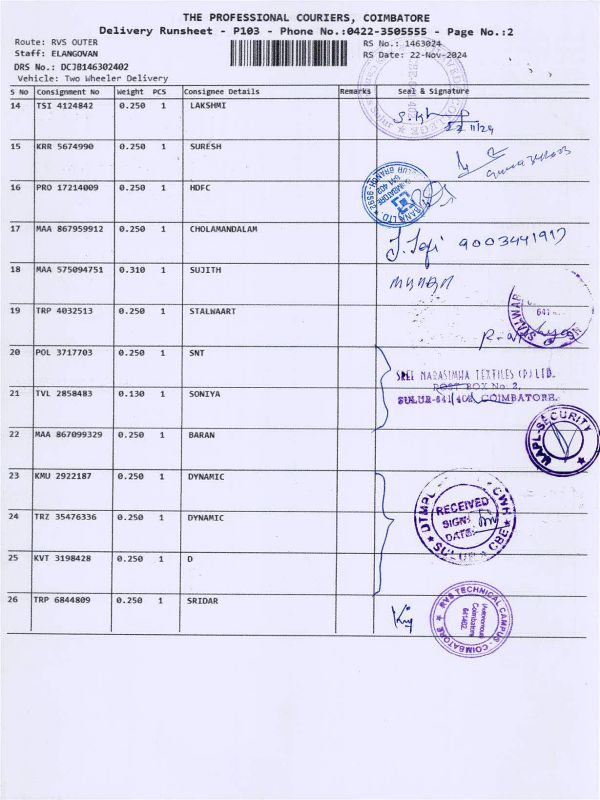 THE PROFESSIONAL COURIERS, COIMBATORE
Delivery Runsheet - P103 - Phone No.:0422-3505555 - Page No.:2
Route: RVS OUTER
RS No.: 1463024
Staff: ELANGOVAN
RS Date: 22-Nov-2024
DRS No.: DCJB146302402
Vehicle: Two Wheeler Delivery
S No Consignment No Weight PCS Consignee Details Remarks Seal & Signature
14 TSI 4124842 0.250 1 LAKSHMI
22/11/24
15 KRR 5674990 0.250 1 SURESH
16 PRO 17214009 0.250 1 HDFC
SULUR BRANCH-9592
COIMBATORE
641 402
BANK LTD
17 MAA 867959912 0.250 1 CHOLAMANDALAM
9003441917
18 MAA 575094751 0.310 1 SUJITH
19 TRP 4032513 0.250 1 STALWAART
641
20 POL 3717703 0.250 1 SNT
SREE NARASIMHA TEXTILES (P) LTD.
POST BOX No. 2,
21 TVL 2858483 0.130 1 SONIYA
SULUR-641 402 COIMBATORE.
22 MAA 867099329 0.250 1 BARAN
MAPL-SECURITY
23 KMU 2922187 0.250 1 DYNAMIC
DTMPL
RECEIVED
SIGN:
DATE:
SULUR CBE
24 TRZ 35476336 0.250 1 DYNAMIC
25 KVT 3198428 0.250 1 D
26 TRP 6844809 0.250 1 SRIDAR
RVS TECHNICAL CAMPUS - COIMBATORE
(Autonomous)
Coimbatore
641402